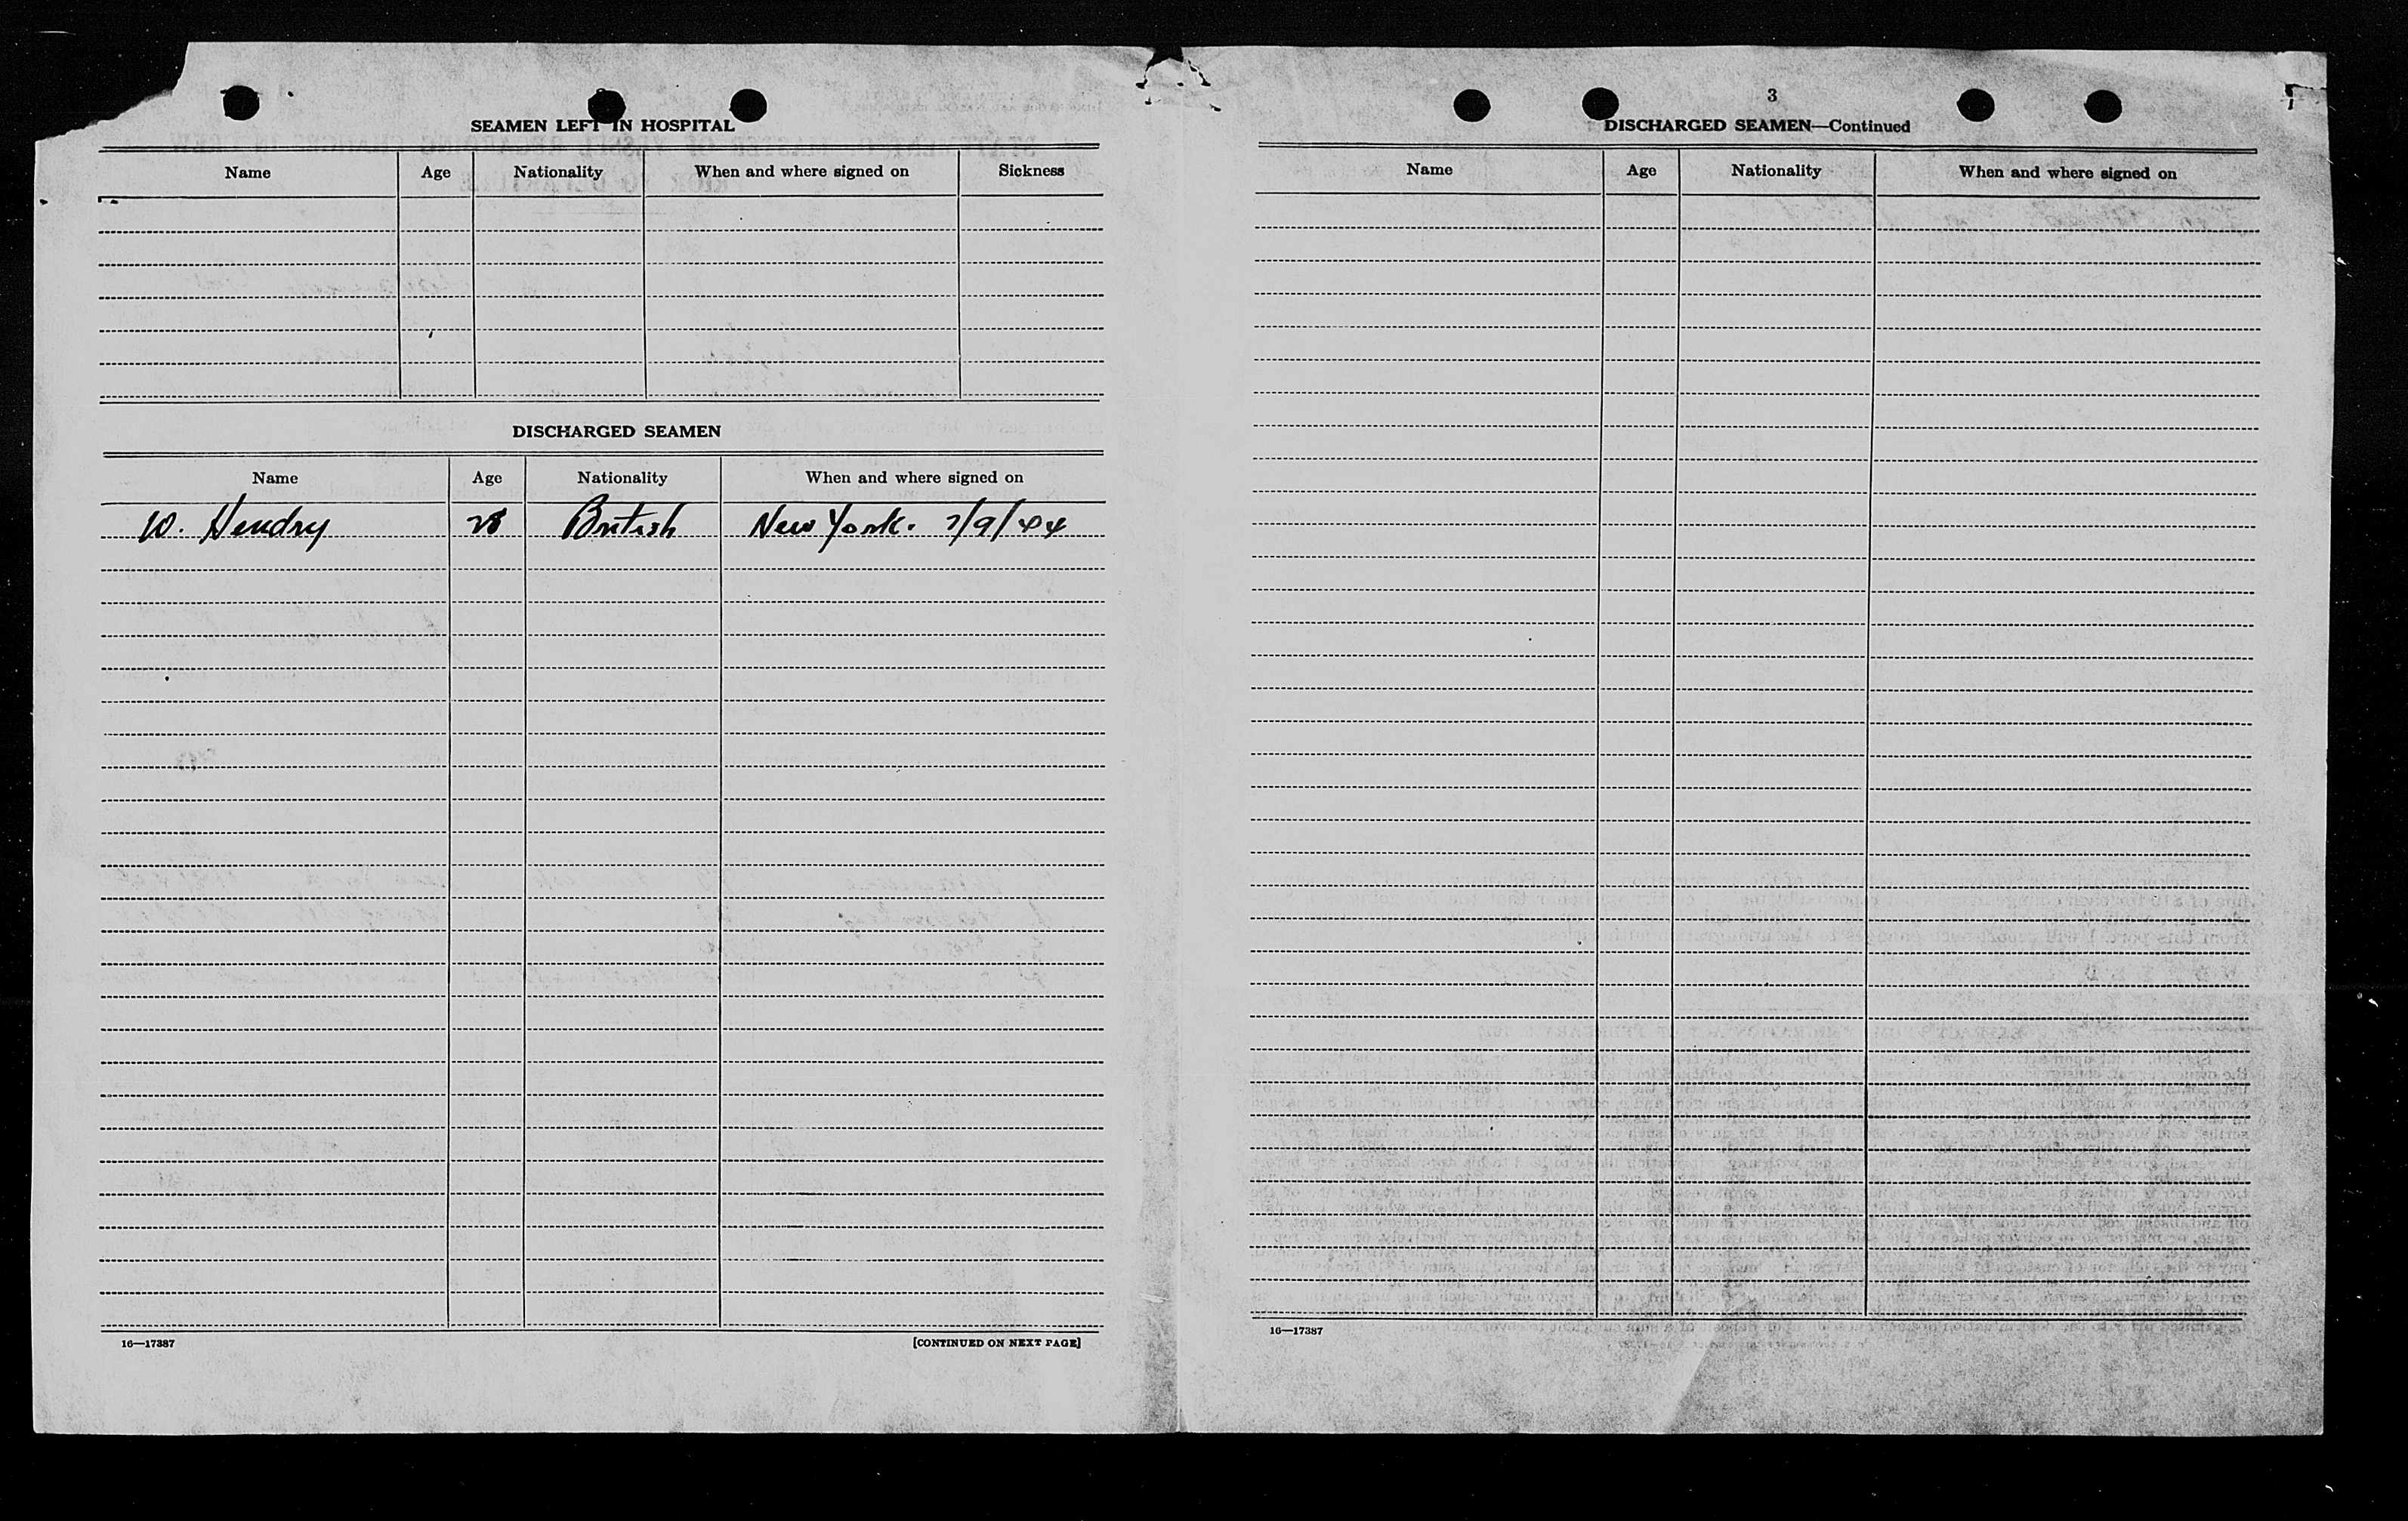 SEAMEN LEFT IN HOSPITAL
Name Age Nationality When and where signed on Sickness
DISCHARGED SEAMEN
Name Age Nationality When and where signed on
W. Hendry 28 British New York. 7/9/44
16—17387 [CONTINUED ON NEXT PAGE]
3
DISCHARGED SEAMEN—Continued
Name Age Nationality When and where signed on
16—17387